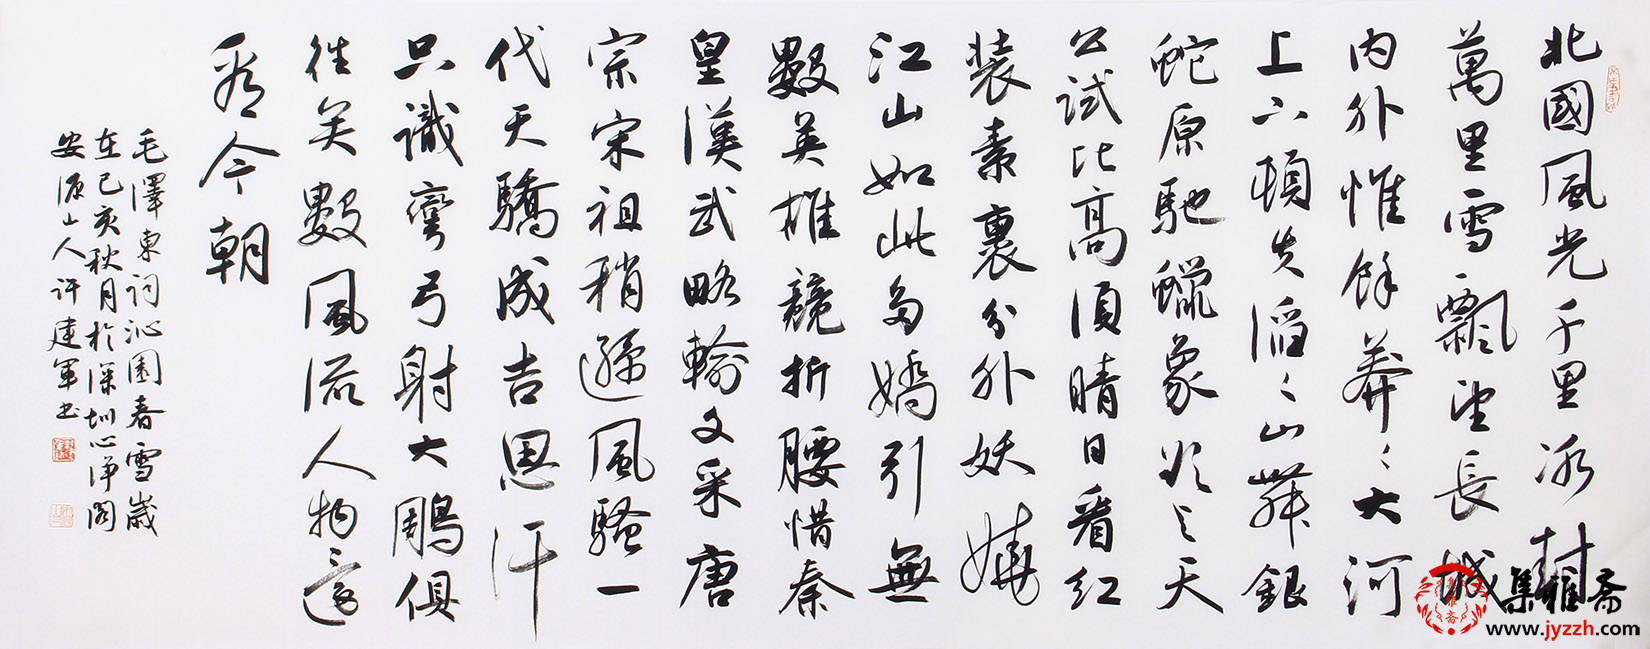 北國風光千里冰封
萬里雪飄望長城
内外惟餘莽〻大河
上下頓失滔〻山舞銀
蛇原馳蠟象欲与天
公試比高須晴日看红
装素裹分外妖嬈
江山如此多嬌引無
數英雄競折腰惜秦
皇漢武略輸文采唐
宗宋祖稍遜風騷一
代天驕成吉思汗
只識彎弓射大鵰俱
往矣數風流人物還
看今朝
毛澤東詞沁園春雪歲
在己亥秋月於深圳心浄閣
安源山人許建軍书
集雅斋
www.jyzzh.com